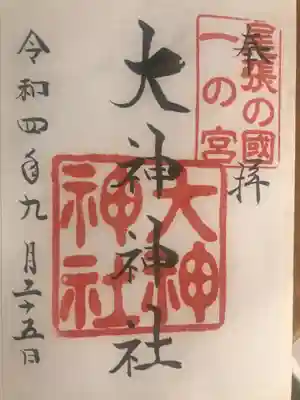 奉拝
尾張の國
一の宮
大神神社
大神
神社
令和四年九月二十五日